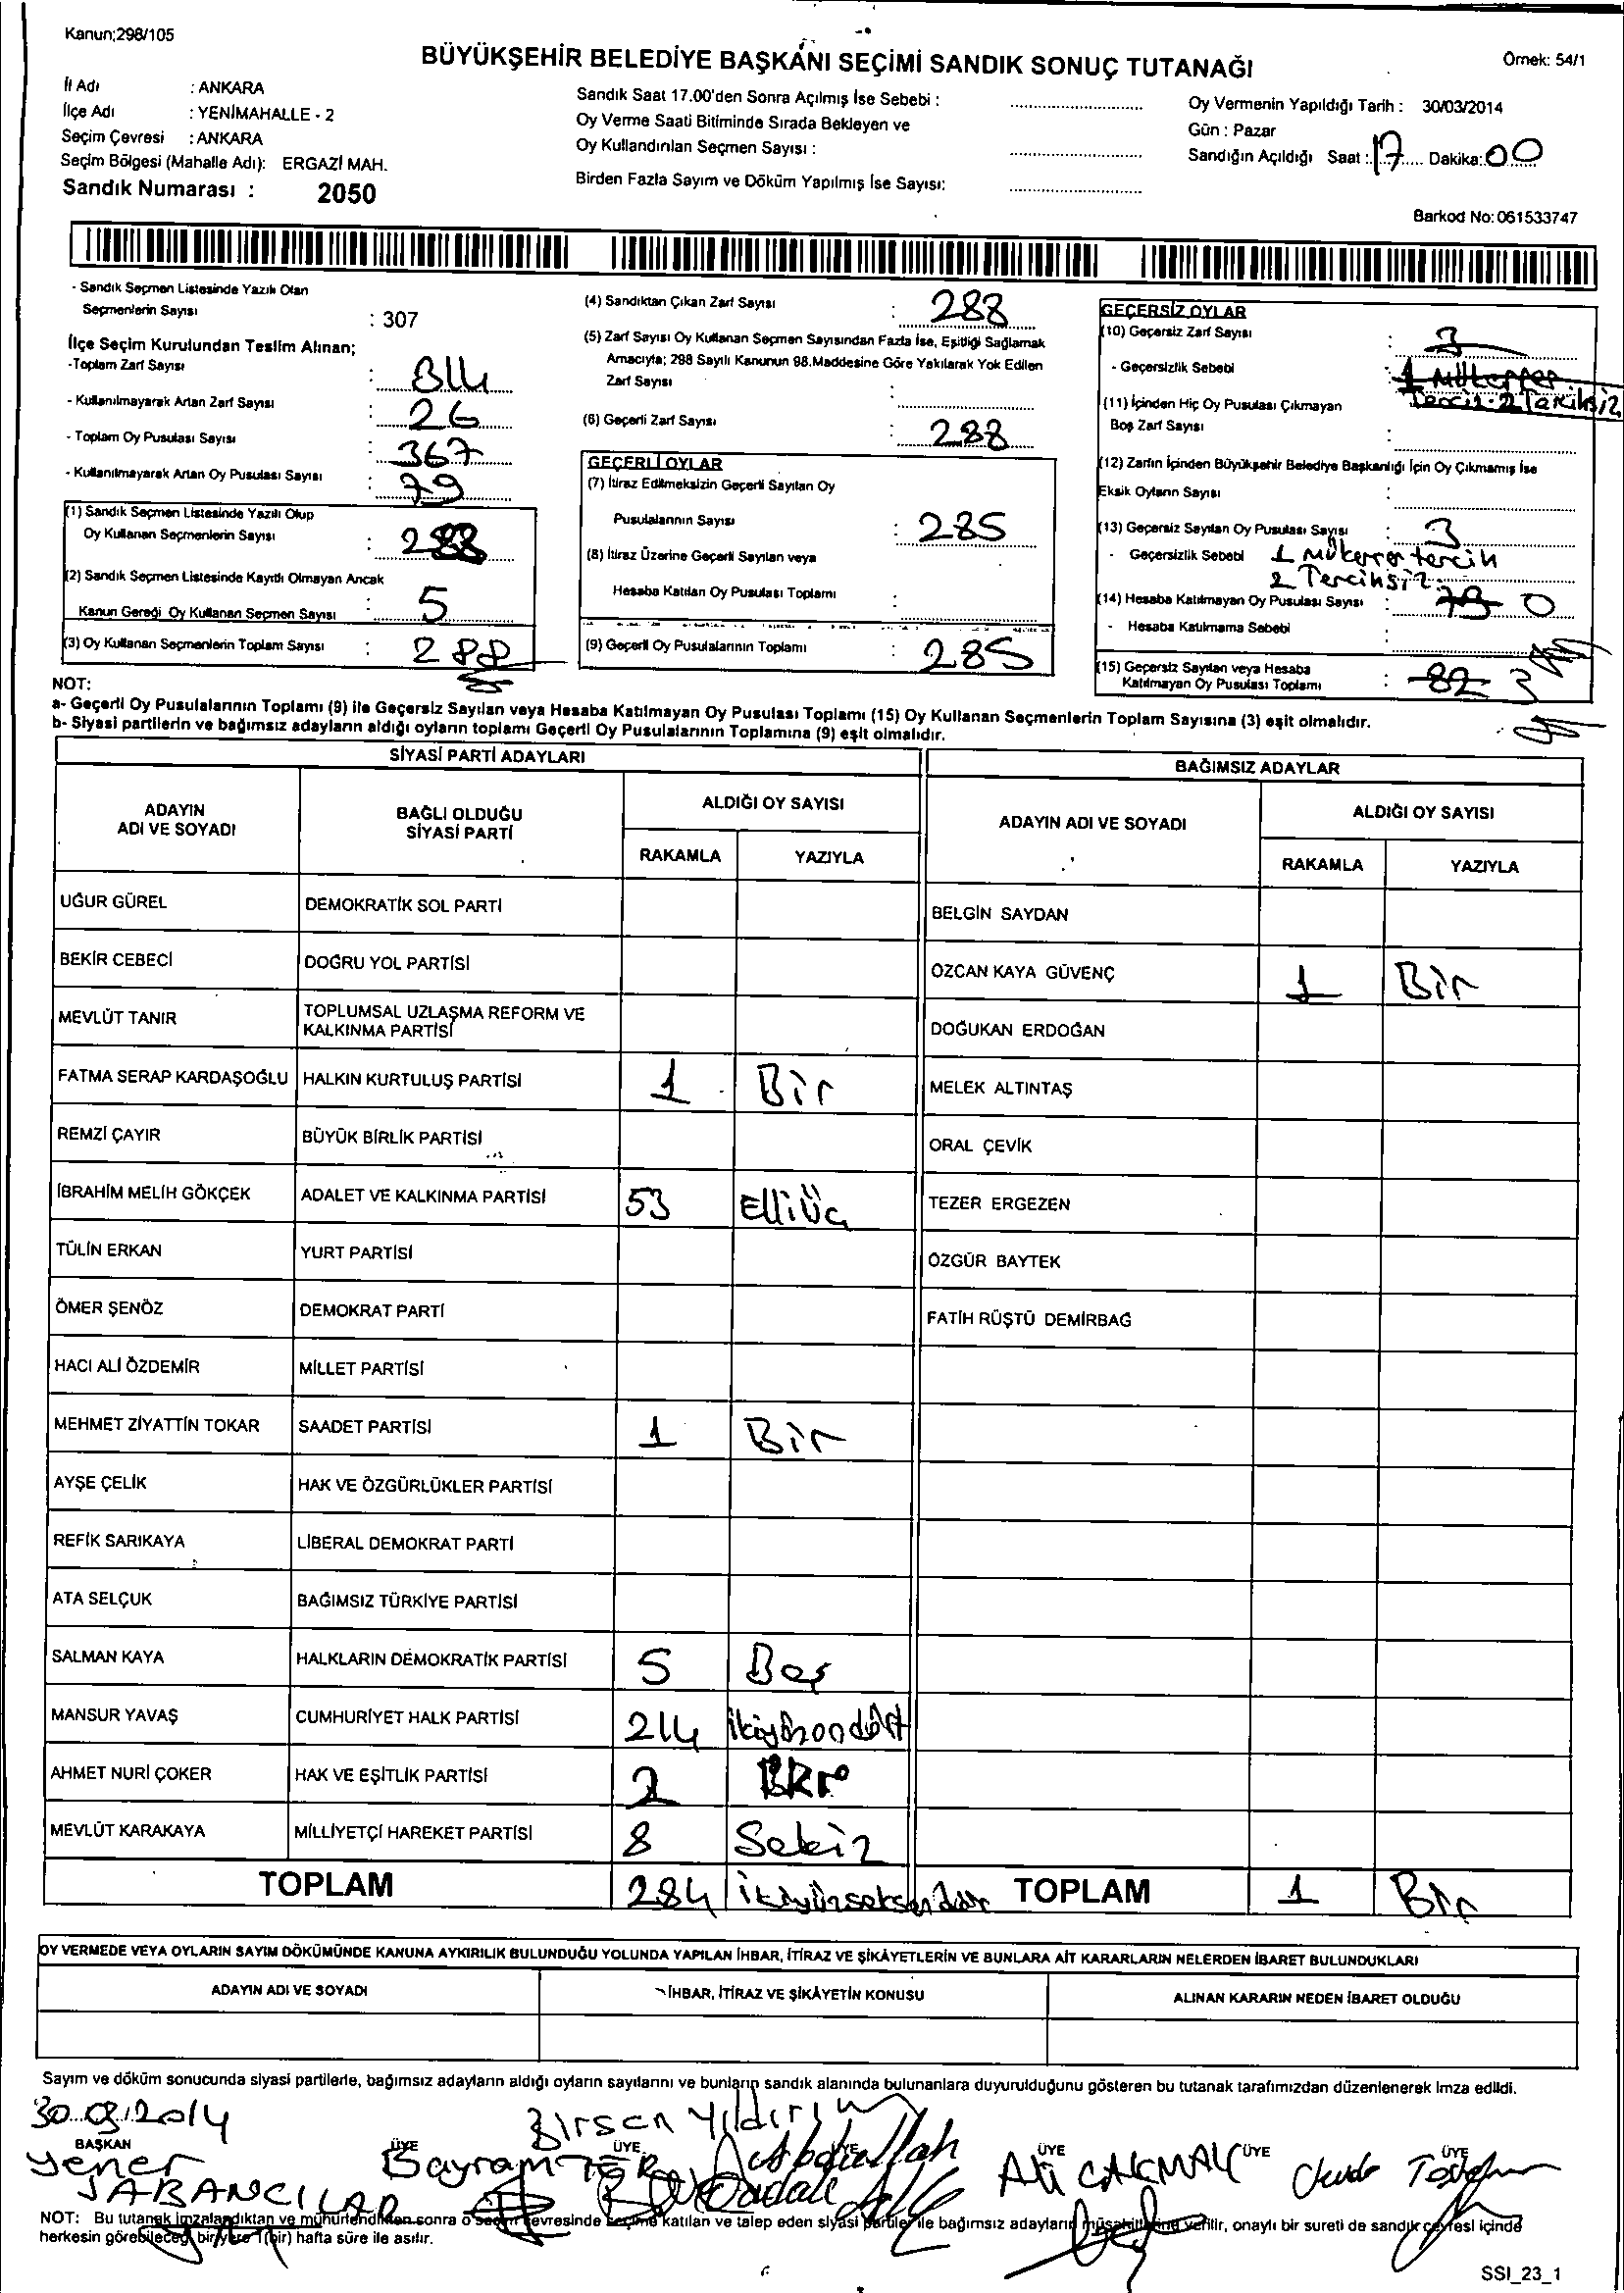 Kanun;298/105
BÜYÜKŞEHİR BELEDİYE BAŞKANI SEÇİMİ SANDIK SONUÇ TUTANAĞI
Örnek: 54/1
İl Adı : ANKARA
İlçe Adı : YENİMAHALLE - 2
Seçim Çevresi : ANKARA
Seçim Bölgesi (Mahalle Adı): ERGAZİ MAH.
Sandık Numarası : 2050
Sandık Saat 17.00'den Sonra Açılmış İse Sebebi :
Oy Verme Saati Bitiminde Sırada Bekleyen ve
Oy Kullandırılan Seçmen Sayısı :
Birden Fazla Sayım ve Döküm Yapılmış İse Sayısı:
Oy Vermenin Yapıldığı Tarih : 30/03/2014
Gün : Pazar
Sandığın Açıldığı Saat : 17 Dakika: 00
Barkod No: 061533747
- Sandık Seçmen Listesinde Yazılı Olan
Seçmenlerin Sayısı : 307
İlçe Seçim Kurulundan Teslim Alınan;
-Toplam Zarf Sayısı : 314
- Kullanılmayarak Artan Zarf Sayısı : 26
- Toplam Oy Pusulası Sayısı : 367
- Kullanılmayarak Artan Oy Pusulası Sayısı : 79
(1) Sandık Seçmen Listesinde Yazılı Olup
Oy Kullanan Seçmenlerin Sayısı : 288
(2) Sandık Seçmen Listesinde Kayıtlı Olmayan Ancak
Kanun Gereği Oy Kullanan Seçmen Sayısı : 5
(3) Oy Kullanan Seçmenlerin Toplam Sayısı : 288
(4) Sandıktan Çıkan Zarf Sayısı : 288
(5) Zarf Sayısı Oy Kullanan Seçmen Sayısından Fazla İse, Eşitliği Sağlamak
Amacıyla; 298 Sayılı Kanunun 98.Maddesine Göre Yakılarak Yok Edilen
Zarf Sayısı :
(6) Geçerli Zarf Sayısı : 288
GEÇERLİ OYLAR
(7) İtiraz Edilmeksizin Geçerli Sayılan Oy
Pusulalarının Sayısı : 285
(8) İtiraz Üzerine Geçerli Sayılan veya
Hesaba Katılan Oy Pusulası Toplamı :
(9) Geçerli Oy Pusulalarının Toplamı : 285
GEÇERSİZ OYLAR
(10) Geçersiz Zarf Sayısı : 3
- Geçersizlik Sebebi : 1 Mükerrer
(11) İçinden Hiç Oy Pusulası Çıkmayan
Boş Zarf Sayısı :
(12) Zarfın İçinden Büyükşehir Belediye Başkanlığı İçin Oy Çıkmamış İse
Eksik Oyların Sayısı :
(13) Geçersiz Sayılan Oy Pusulası Sayısı : 3
- Geçersizlik Sebebi 1 Mükerrer tercih
2 Tercihsiz
(14) Hesaba Katılmayan Oy Pusulası Sayısı : 79 0
- Hesaba Katılmama Sebebi :
(15) Geçersiz Sayılan veya Hesaba
Katılmayan Oy Pusulası Toplamı : 82 3
NOT:
a- Geçerli Oy Pusulalarının Toplamı (9) ile Geçersiz Sayılan veya Hesaba Katılmayan Oy Pusulası Toplamı (15) Oy Kullanan Seçmenlerin Toplam Sayısına (3) eşit olmalıdır.
b- Siyasi partilerin ve bağımsız adayların aldığı oyların toplamı Geçerli Oy Pusulalarının Toplamına (9) eşit olmalıdır.
SİYASİ PARTİ ADAYLARI
BAĞIMSIZ ADAYLAR
ADAYIN ADI VE SOYADI
BAĞLI OLDUĞU SİYASİ PARTİ
ALDIĞI OY SAYISI
RAKAMLA YAZIYLA
ADAYIN ADI VE SOYADI
ALDIĞI OY SAYISI
RAKAMLA YAZIYLA
UĞUR GÜREL DEMOKRATİK SOL PARTİ
BELGİN SAYDAN
BEKİR CEBECİ DOĞRU YOL PARTİSİ
ÖZCAN KAYA GÜVENÇ 1 Bir
MEVLÜT TANIR TOPLUMSAL UZLAŞMA REFORM VE KALKINMA PARTİSİ
DOĞUKAN ERDOĞAN
FATMA SERAP KARDAŞOĞLU HALKIN KURTULUŞ PARTİSİ 1 Bir
MELEK ALTINTAŞ
REMZİ ÇAYIR BÜYÜK BİRLİK PARTİSİ
ORAL ÇEVİK
İBRAHİM MELİH GÖKÇEK ADALET VE KALKINMA PARTİSİ 53 Elliüç
TEZER ERGEZEN
TÜLİN ERKAN YURT PARTİSİ
ÖZGÜR BAYTEK
ÖMER ŞENÖZ DEMOKRAT PARTİ
FATİH RÜŞTÜ DEMİRBAĞ
HACI ALİ ÖZDEMİR MİLLET PARTİSİ
MEHMET ZİYATTİN TOKAR SAADET PARTİSİ 1 Bir
AYŞE ÇELİK HAK VE ÖZGÜRLÜKLER PARTİSİ
REFİK SARIKAYA LİBERAL DEMOKRAT PARTİ
ATA SELÇUK BAĞIMSIZ TÜRKİYE PARTİSİ
SALMAN KAYA HALKLARIN DEMOKRATİK PARTİSİ 5 Beş
MANSUR YAVAŞ CUMHURİYET HALK PARTİSİ 214 ikiyüzondört
AHMET NURİ ÇOKER HAK VE EŞİTLİK PARTİSİ 2
MEVLÜT KARAKAYA MİLLİYETÇİ HAREKET PARTİSİ 8 Sekiz
TOPLAM 284 ikiyüzseksendört
TOPLAM 1 Bir
OY VERMEDE VEYA OYLARIN SAYIM DÖKÜMÜNDE KANUNA AYKIRILIK BULUNDUĞU YOLUNDA YAPILAN İHBAR, İTİRAZ VE ŞİKÂYETLERİN VE BUNLARA AİT KARARLARIN NELERDEN İBARET BULUNDUKLARI
ADAYIN ADI VE SOYADI İHBAR, İTİRAZ VE ŞİKÂYETİN KONUSU ALINAN KARARIN NEDEN İBARET OLDUĞU
Sayım ve döküm sonucunda siyasi partilerle, bağımsız adayların aldığı oyların sayılarını ve bunların sandık alanında bulunanlara duyurulduğunu gösteren bu tutanak tarafımızdan düzenlenerek imza edildi.
30.03.2014
BAŞKAN ÜYE ÜYE ÜYE ÜYE ÜYE ÜYE
Yener YABANCILAR
Bayram
Birsen Yıldırım
Abdullah
Ali ÇAKMAK
NOT: Bu tutanak imzalandıktan ve mühürlendikten sonra o seçim çevresinde seçime katılan ve talep eden siyasi partiler ile bağımsız adayların müşahitlerine verilir, onaylı bir sureti de sandık çevresi içinde
herkesin görebileceği bir yere 1 (bir) hafta süre ile asılır.
SSI_23_1